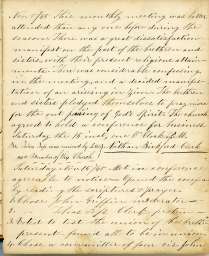 Nov 1/85 This monthly meeting was better
attended than any one before during the
season. There was a great dissatisfaction
manifest on the part of the brethren and
sisters, with their present religious attain-
ments. There was considerable confessing
in the meeting and a decided manifes-
tation of an arising in Zion. The brethren
and sisters pledged themselves to pray more
for the out pouring of God's Spirit. The church
agreed to hold a conference for business
Saturday the 15 inst, one O'Clock P.M.
Nathan Bickford Clerk
Saturday Nov 15/85 Met in conference
agreeable to notice. Opened the song
by reading the scriptures & prayer.
Chose John Griffin moderator
Clerk protem
Voted to test the union of the brethren
present found all to be in union
Chose a committee of four viz John